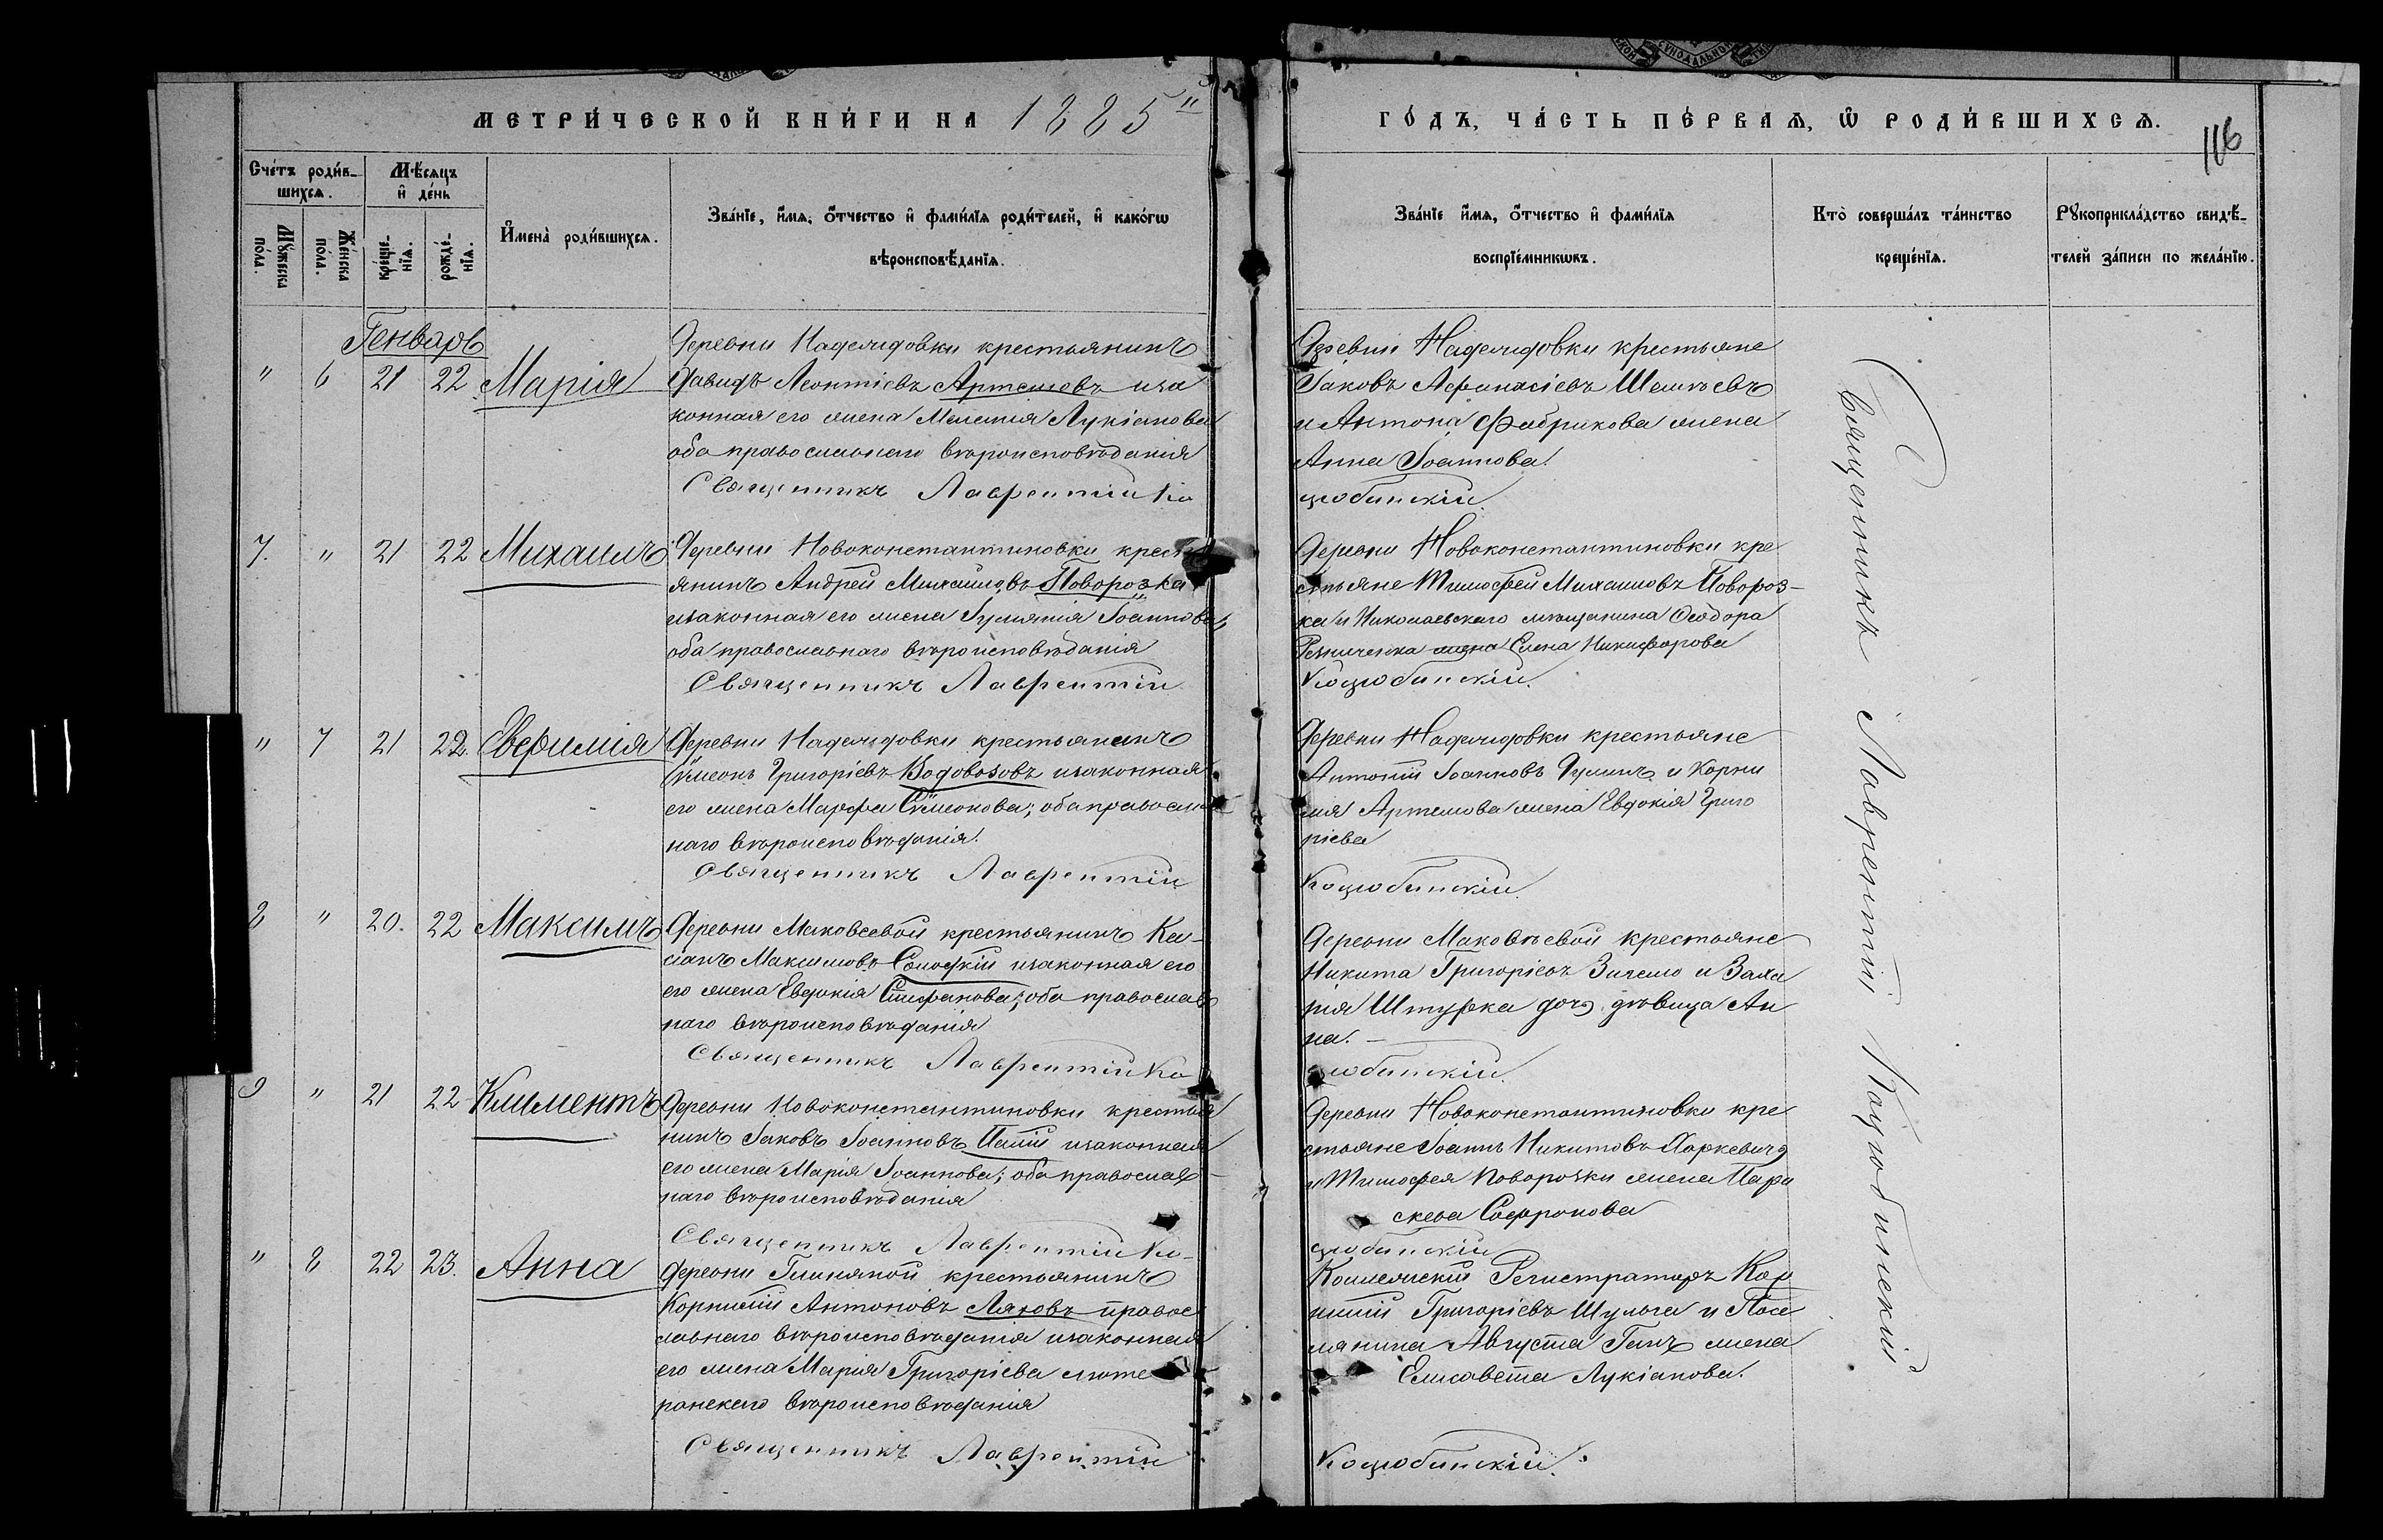 МЕТРИ́ЧЕСКОЙ КНИ́ГИ НА 1885й
ГО́ДЪ, ЧА́СТЬ ПЕ́РВАѦ, Ѿ РОДИ́ВШИХСѦ.
116
Сче́тъ роди́в-
шихсѧ.
Мѣ́сѧцъ
и҆ де́нь
Мꙋ́жеска
по́ла.
Же́нска
по́ла.
креще́-
нїѧ.
рожде́-
нїѧ.
И҆мена̀ роди́вшихсѧ.
Зва́нїе, и҆́мѧ, ѻ҆́тчество и҆ фами́лїѧ роди́телей, и҆ како́гѡ
вѣроисповѣ́данїѧ.
Зва́нїе и҆́мѧ, ѻ҆́тчество и҆ фами́лїѧ
воспрїе́мникѡвъ.
Кто̀ соверша́лъ та́инство
креще́нїѧ.
Рꙋкоприкла́дство свидѣ́-
телей за́писи по жела́нїю.
Генварь
" 6 21 22 Марія
Деревни Надеждовки крестьянинъ
Давидъ Леонтіевъ Артемевъ иза
конная его жена Мелетія Лукіанова
оба православнаго вѣроисповѣданія
Священникъ Лаврентій Ко
Деревни Надеждовки крестьяне
Іаковъ Афанасіевъ
и Антона Фабрикова жена
Анна Іоаннова.
цюбинскій.
7. " 21 22 Михаилъ
Деревни Новоконстантиновки крест
янинъ Андрей Михаиловъ Поворозка
изаконная его жена Іоаннова
оба православнаго вѣроисповѣданія
Священникъ Лаврентій
Деревни Новоконстантиновки кре
стьяне Тимофей Михаиловъ Повороз-
ка и Николаевскаго мѣщанина Ѳеодора
Резниченка жена Елена Никифорова
Коцюбинскій.
" 7 21 22 Евфимія
Деревни Надеждовки крестьянинъ
Сѵмеонъ Григоріевъ Водовозовъ изаконная
его жена Марфа Сѵмеонова; оба правосла
наго вѣроисповѣданія.
Священникъ Лаврентій
Деревни Надеждовки крестьяне
Антоній Іоанновъ и Корни
лія Артемова жена Евдокія Григо
ріева
Коцюбинскій.
8 " 20. 22 Максимъ
Деревни Маковеевой крестьянинъ Ка-
сіанъ Максимовъ изаконная его
его жена Евдокія Стефанова; оба православ
наго вѣроисповѣданія
Священникъ Лаврентій Ко
Деревни Маковѣевой крестьяне
Никита Григоріевъ и Заха
рія Штурка дочь дѣвица Ан
на. -
цюбинскій.
9 " 21 22 Климентъ
Деревни Новоконстантиновки крестья
нинъ Іаковъ Іоанновъ Палій изаконная
его жена Марія Іоаннова; оба православ
наго вѣроисповѣданія
Священникъ Лаврентій Ко-
Деревни Новоконстантиновки кре
стьяне Іоаннъ Никитовъ Харкевичъ
и Тимофея Поворозки жена Пара
скева Софронова
цюбинскій
" 8 22 23. Анна
Деревни Глиняной крестьянинъ
Корнилій Антоновъ Ляховъ правос
лавнаго вѣроисповѣданія изаконная
его жена Марія Григоріева люте
ранскаго вѣроисповѣданія
Священникъ Лаврентій
Коллежскій Регистраторъ Кор
нилій Григоріевъ Шульга и Посе
лянина Августа Ганъ жена
Елисавета Лукіанова.
Коцюбинскій.
Священникъ Лаврентій Коцюбинскій